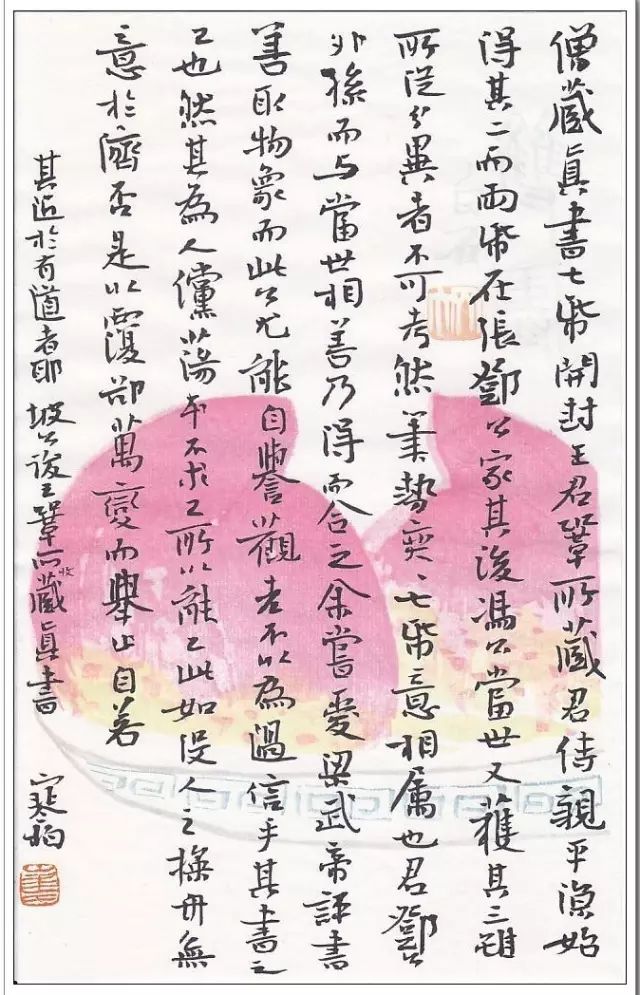 僧藏真書七帋開封王君鞏所藏君侍親平涼始
得其二而兩帋在張鄧公家其後馮公當世又獲其三雖
所從分異者不可考然筆勢奕奕七帋意相屬也君鄧公
外孫而与當世相善乃得而合之余嘗愛梁武帝評書
善取物象而此公尤能自譽觀者不以為過信乎其書之
工也然其為人儻蕩本不求工所以能工此如沒人之操舟無
意於濟否是以覆卻萬變而舉止自若
其近於有道者耶 坡公跋王鞏所收藏真書